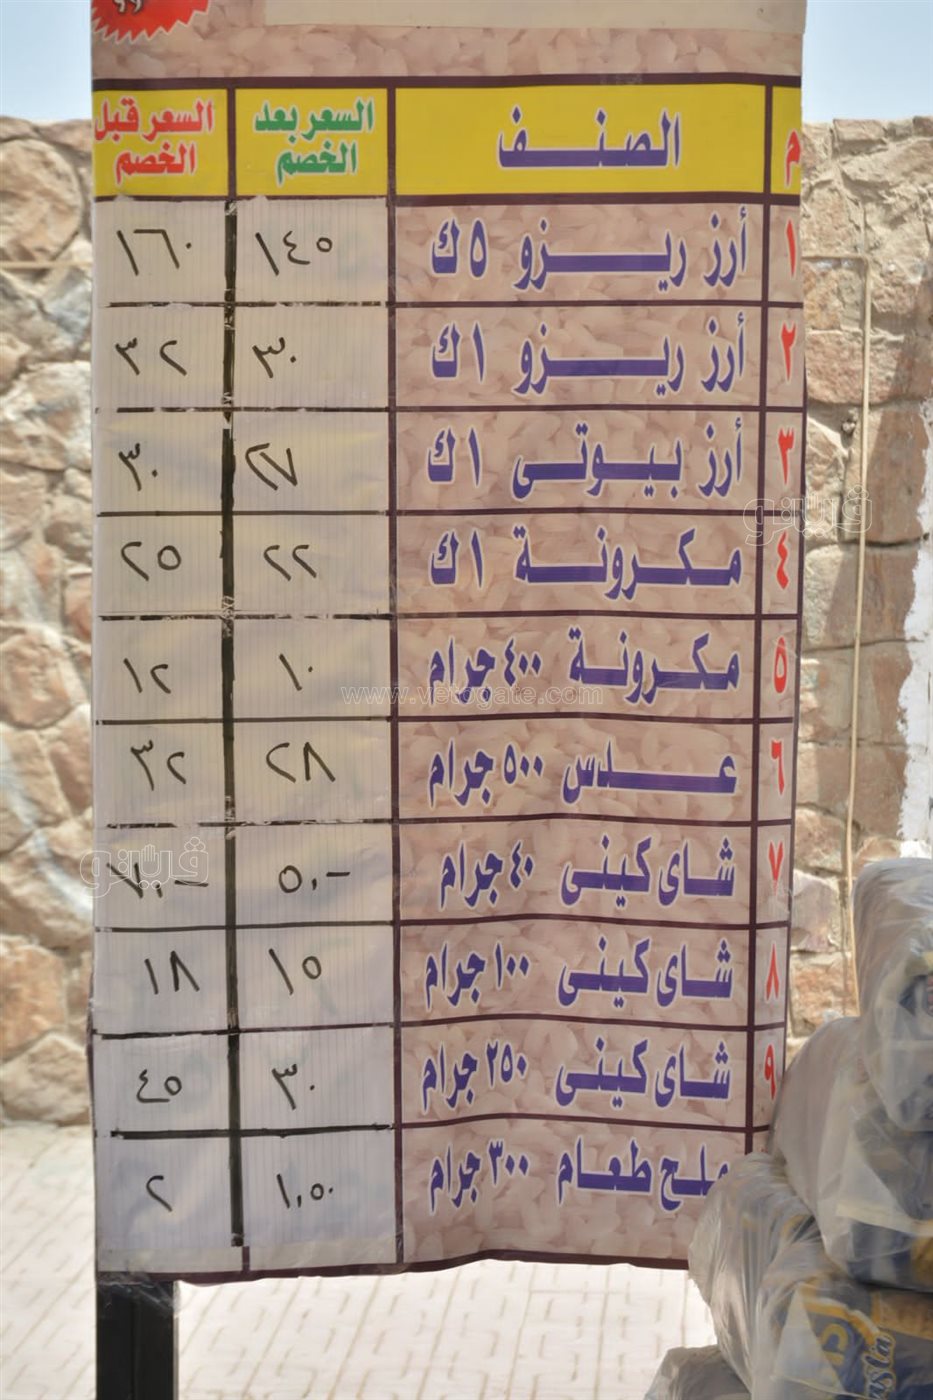 م الصنف السعر بعد الخصم السعر قبل الخصم
١ أرز ريزو ٥ ك ١٤٥ ١٦٠
٢ أرز ريزو ١ ك ٣٠ ٣٢
٣ أرز بيوتى ١ ك ٢٧ ٣٠
٤ مكرونة ١ ك ٢٢ ٢٥
٥ مكرونة ٤٠٠ جرام ١٠ ١٢
٦ عدس ٥٠٠ جرام ٢٨ ٣٢
٧ شاى كينى ٤٠ جرام ٥,٠-
٨ شاى كينى ١٠٠ جرام ١٥ ١٨
٩ شاى كينى ٢٥٠ جرام ٣٠ ٤٥
ملح طعام ٣٠٠ جرام ١,٥٠ ٢
فيتو
www.vetogate.com
فيتو